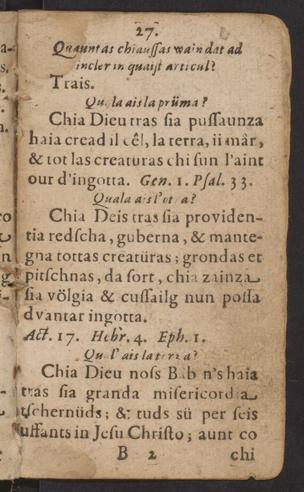 27.
Quauntas chiaussas waindat ad
incler in quaist articul?
Trais.
Qu la ais la prüma?
Chia Dieu tras sia pussaunza
haia cread il cêl, la terra, ii mâr,
& tot las creaturas chi sun l'aint
our d'ingotta. Gen. 1. Psal. 33.
Quala ais l'ot a?
Chia Deis tras sia providen-
tia redscha, guberna, & mante-
gna tottas creatüras; grondas et
pitschnas, da sort, chia zainza
sia völgia & cussailg nun possa
dvantar ingotta.
Act. 17. Hebr. 4. Eph. 1.
Qu l'ais la terza?
Chia Dieu noss Bab n's haia
tras sia granda misericordia
tschernüds; & tuds sü per seis
uffants in Jesu Christo; aunt co
B 2 chi